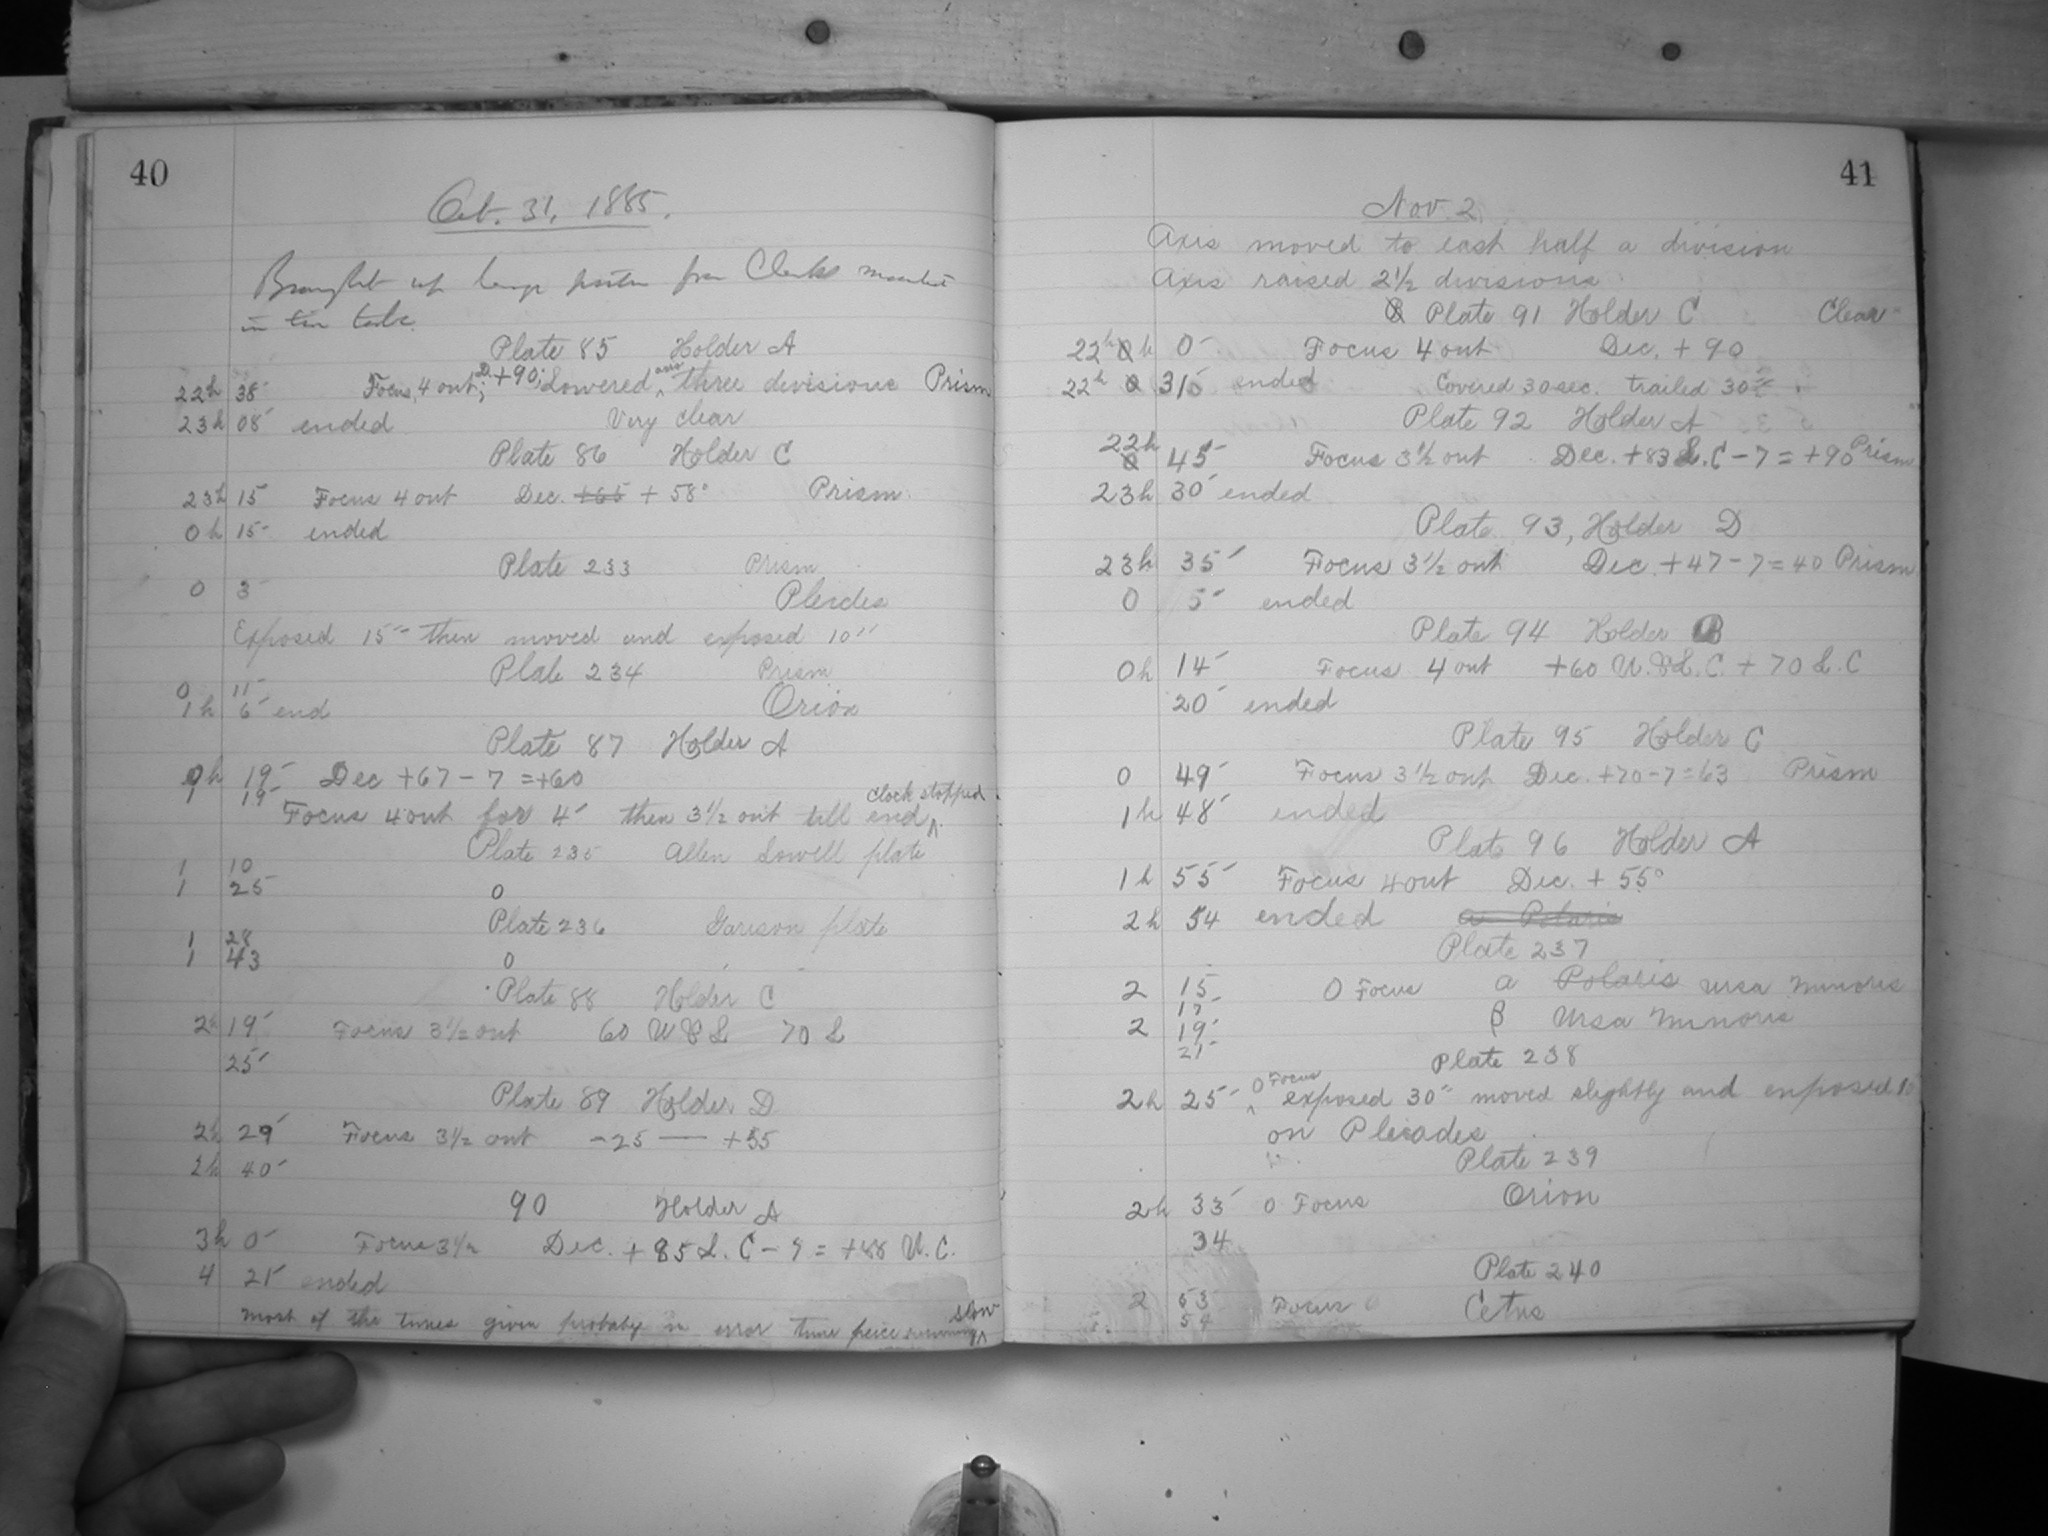 40
Oct. 31, 1885.
Brought up large from Clarks mounted
in tin tube.
Plate 85 Holder A
22h 38 Focus 4 out; D. +90; Lowered axis three divisions Prism
23h 08 ended Very clear
Plate 86 Holder C
23h 15 Focus 4 out Dec. +65 + 58° Prism
0h 15 ended
Plate 233 Prism
0 3 Pleides
Exposed 15" then moved and exposed 10"
Plate 234 Prism
0 11
1h 6 end Orion
Plate 87 Holder A
0h 19 Dec +67 - 7 = +60
1 19
Focus 4 out for 4' then 3 1/2 out till end clock stopped
Plate 235 Allen Lowell plate
1 10
1 25 0
Plate 236 Garison plate
1 28
1 43 0
Plate 88 Holder C
2h 19 Focus 3 1/2 out 60 U & L 70 L
25
Plate 89 Holder D
2h 29 Focus 3 1/2 out -25 — +55
2h 40
90 Holder A
3h 0 Focus 3 1/2 Dec. + 85 L. C - 7 = +88 U. C.
4 21 ended
most of the times given probably in error time peice running slow
41
Nov. 2.
Axis moved to east half a division
Axis raised 2 1/2 divisions
Plate 91 Holder C Clear
22h 0 Focus 4 out Dec. + 90
22h 31 ended Covered 30 sec. trailed 30"
Plate 92 Holder A
22h 45 Focus 3 1/2 out Dec. +83 L. C - 7 = +90 Prism
23h 30 ended
Plate 93, Holder D
23h 35 Focus 3 1/2 out Dec. +47 - 7 = 40 Prism
0 5 ended
Plate 94 Holder B
0h 14 Focus 4 out +60 U. & L. C. + 70 L. C
20 ended
Plate 95 Holder C
0 49 Focus 3 1/2 out Dec. +70 - 7 = 63 Prism
1h 48 ended
Plate 96 Holder A
1h 55 Focus 4 out Dec. + 55°
2h 54 ended a Polaris
Plate 237
2 15 0 Focus α Polaris Ursa Minoris
17
2 19 β Ursa Minoris
21
Plate 238
2h 25 0 Focus exposed 30" moved slightly and exposed 10
on Pleiades
Plate 239
2h 33 0 Focus Orion
34
Plate 240
2 53 Focus 0 Cetus
54